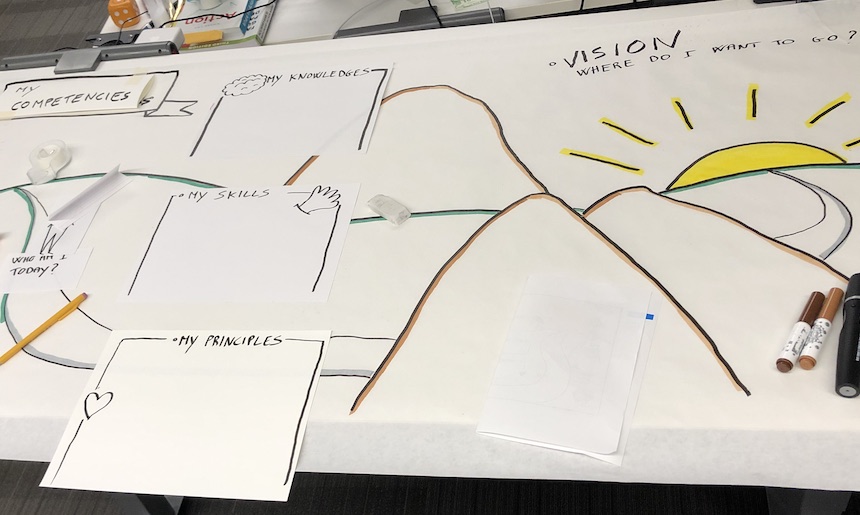 Action
MY
COMPETENCIES
MY KNOWLEDGES
VISION
WHERE DO I WANT TO GO?
MY SKILLS
WHO AM I
TODAY?
MY PRINCIPLES